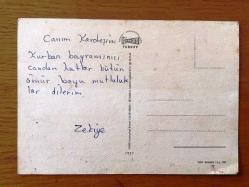 Canım Kardeşim
Kurban bayramınızı
candan kutlar bütün
ömür boyu mutluluk
lar dilerim
Zekiye
TURKEY